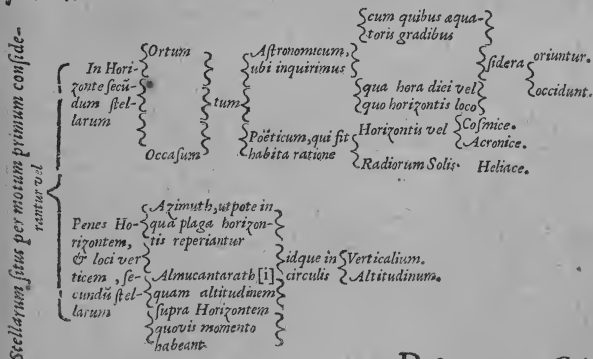 Stellarum ſitus per motum primum conſide-
rantur vel
In Hori-
zonte ſecū-
dum ſtel-
larum
Ortum
Occaſum
tum
Aſtronomicum,
ubi inquirimus
cum quibus æqua-
toris gradibus
qua hora diei vel
quo horizontis loco
ſidera
oriuntur.
occidunt.
Poëticum, qui fit
habita ratione
Horizontis vel
Coſmice.
Acronice.
Radiorum Solis.
Heliace.
Penes Ho-
rizontem,
& loci ver
ticem, ſe-
cundū ſtel-
larum
Azimuth, utpote in
qua plaga horizon-
tis reperiantur
Almucantarath [i]
quam altitudinem
ſupra Horizontem
quovis momento
habeant
idque in
circulis
Verticalium.
Altitudinum.